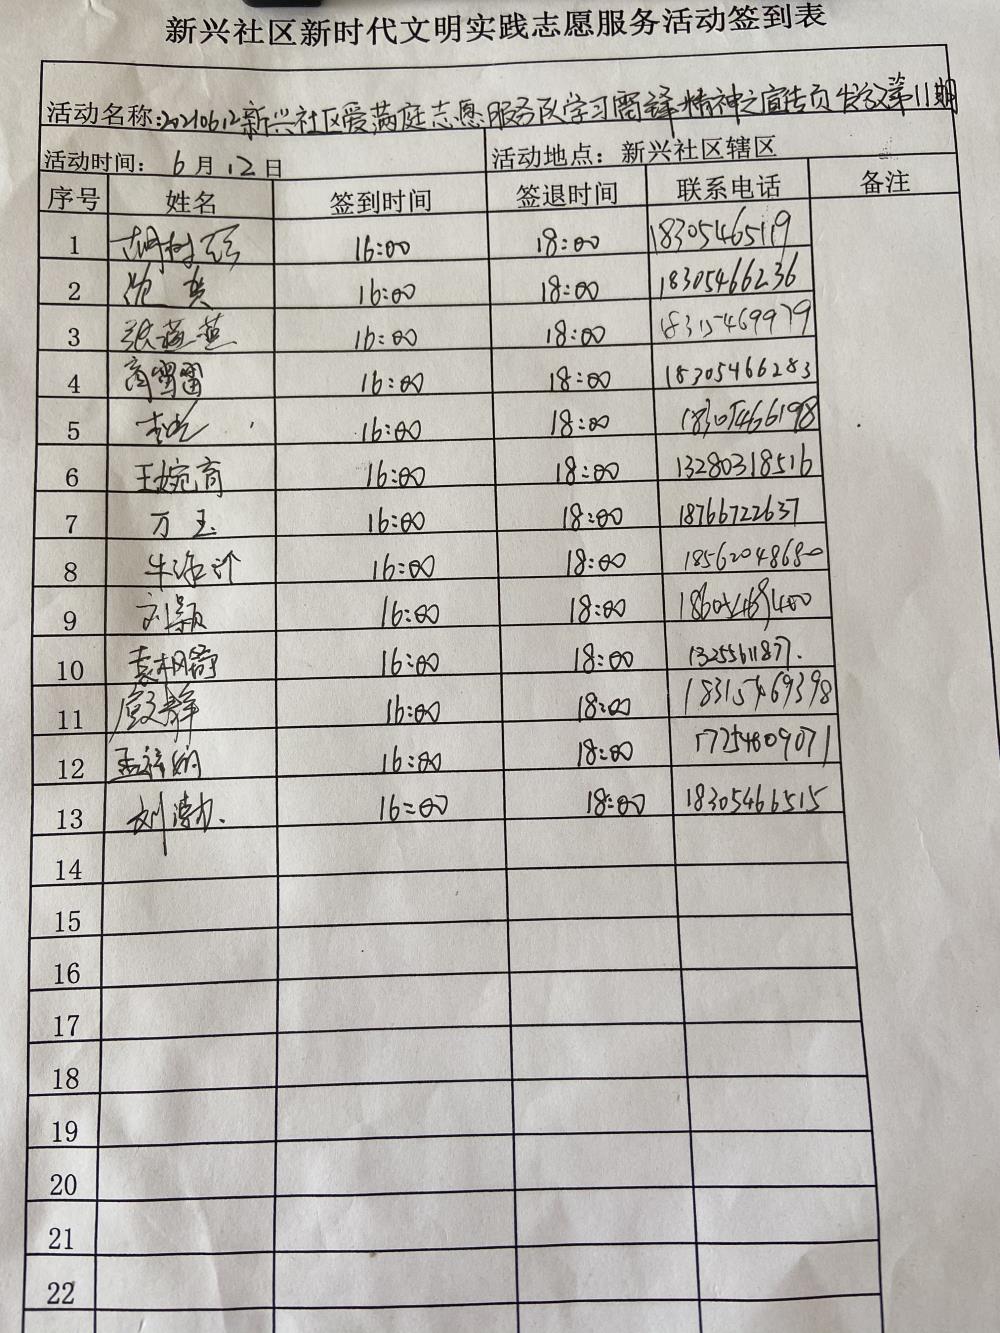 新兴社区新时代文明实践志愿服务活动签到表
活动名称:20210612新兴社区爱满庭志愿服务队学习雷锋精神之宣传员 第11期
活动时间: 6月12日 活动地点: 新兴社区辖区
序号 姓名 签到时间 签退时间 联系电话 备注
1 16:00 18:00 18305465119
2 16:00 18:00 18305466236
3 张燕燕 16:00 18:00 18315469979
4 商雪雷 16:00 18:00 18305466283
5 16:00 18:00 18305466198
6 王婉育 16:00 18:00 13280318516
7 万玉 16:00 18:00 18766722637
8 16:00 18:00 18562048680
9 刘颖 16:00 18:00
10 16:00 18:00 13255611877.
11 16:00 18:00 18315469398
12 16:00 18:00 17754809071
13 16:00 18:00 18305466515
14
15
16
17
18
19
20
21
22